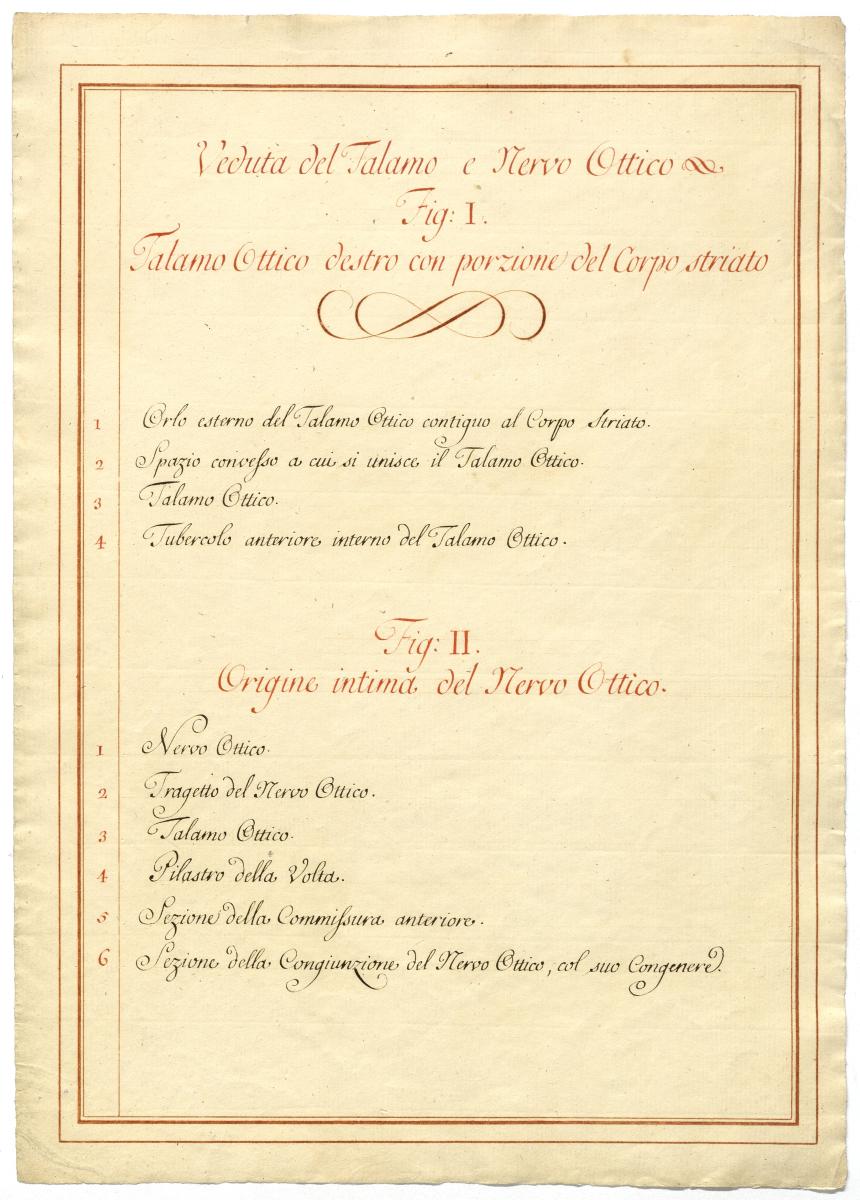 Veduta del Talamo e Nervo Ottico
Fig: I.
Talamo Ottico destro con porzione del Corpo striato
1 Orlo esterno del Talamo Ottico contiguo al Corpo Striato.
2 Spazio convesso a cui si unisce il Talamo Ottico.
3 Talamo Ottico.
4 Tubercolo anteriore interno del Talamo Ottico.
Fig: II.
Origine intima del Nervo Ottico.
1 Nervo Ottico.
2 Tragetto del Nervo Ottico.
3 Talamo Ottico.
4 Pilastro della Volta.
5 Sezione della Commissura anteriore.
6 Sezione della Congiunzione del Nervo Ottico, col suo Congenere.